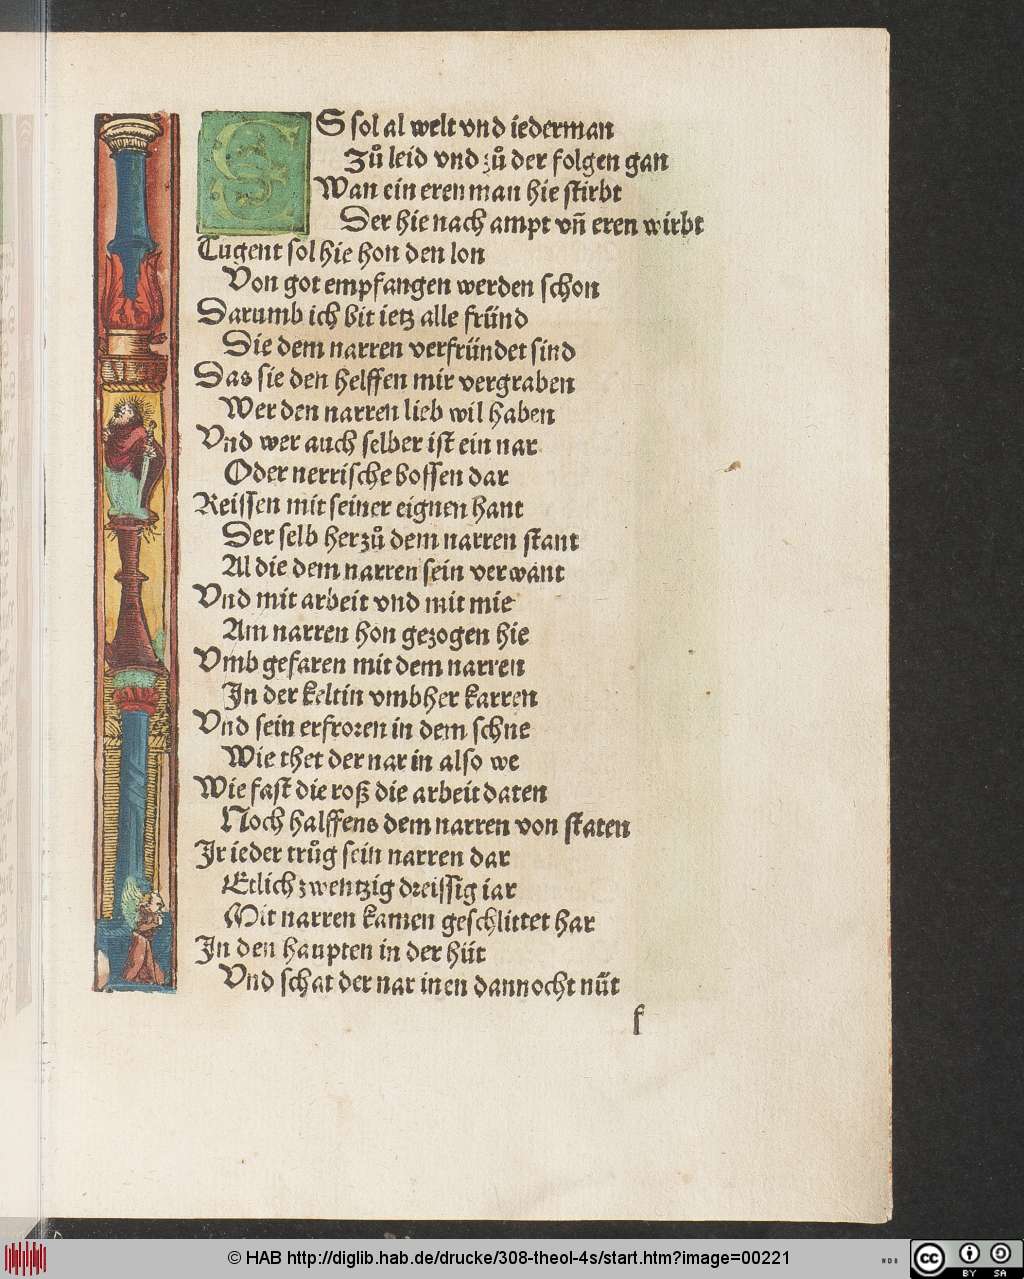 ES sol al welt vnd iederman
Zuͦ leid vnd zuͦ der folgen gan
Wan ein eren man hie stirbt
Der hie nach ampt vñ eren wirbt
Tugent sol hie hon den lon
Von got empfangen werden schon
Darumb ich bit ietz alle fründ
Die dem narren verfründet sind
Das sie den helffen mir vergraben
Wer den narren lieb wil haben
Vnd wer auch selber ist ein nar
Oder nerrische bossen dar
Reissen mit seiner eignen hant
Der selb herzuͦ dem narren stant
Al die dem narren sein verwant
Vnd mit arbeit vnd mit mie
Am narren hon gezogen hie
Vmb gefaren mit dem narren
In der keltin vmbher karren
Vnd sein erfroren in dem schne
Wie thet der nar in also we
Wie fast die roß die arbeit daten
Noch halffens dem narren von staten
Ir ieder truͦg sein narren dar
Etlich zwentzig dreissig iar
Mit narren kamen geschlittet har
In den haupten in der hüt
Vnd schat der nar inen dannocht nüt
f
© HAB http://diglib.hab.de/drucke/308-theol-4s/start.htm?image=00221
WDB
cc
BY SA